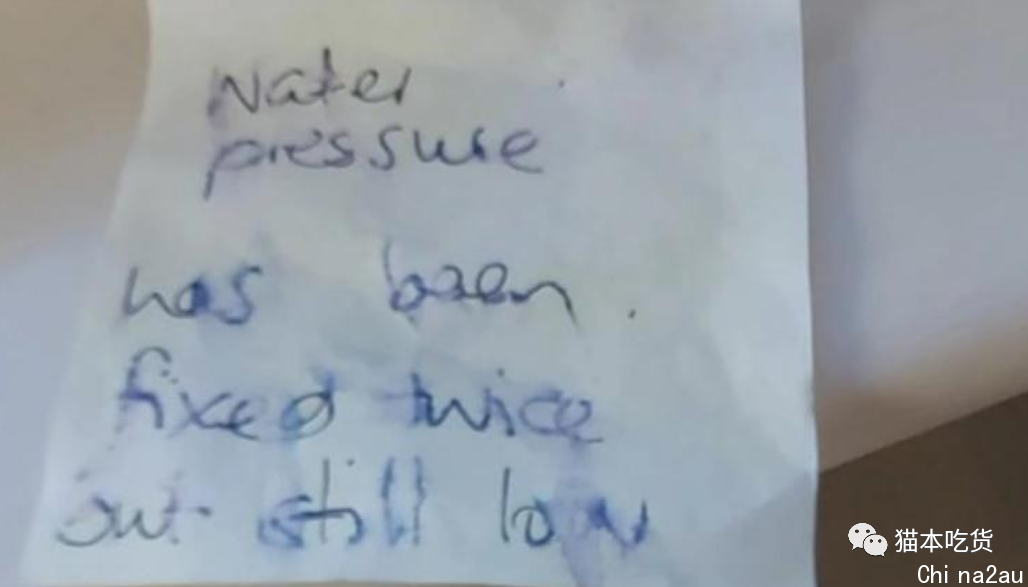 Water
pressure
has been.
fixed twice
but still low
猫本吃货
China2au